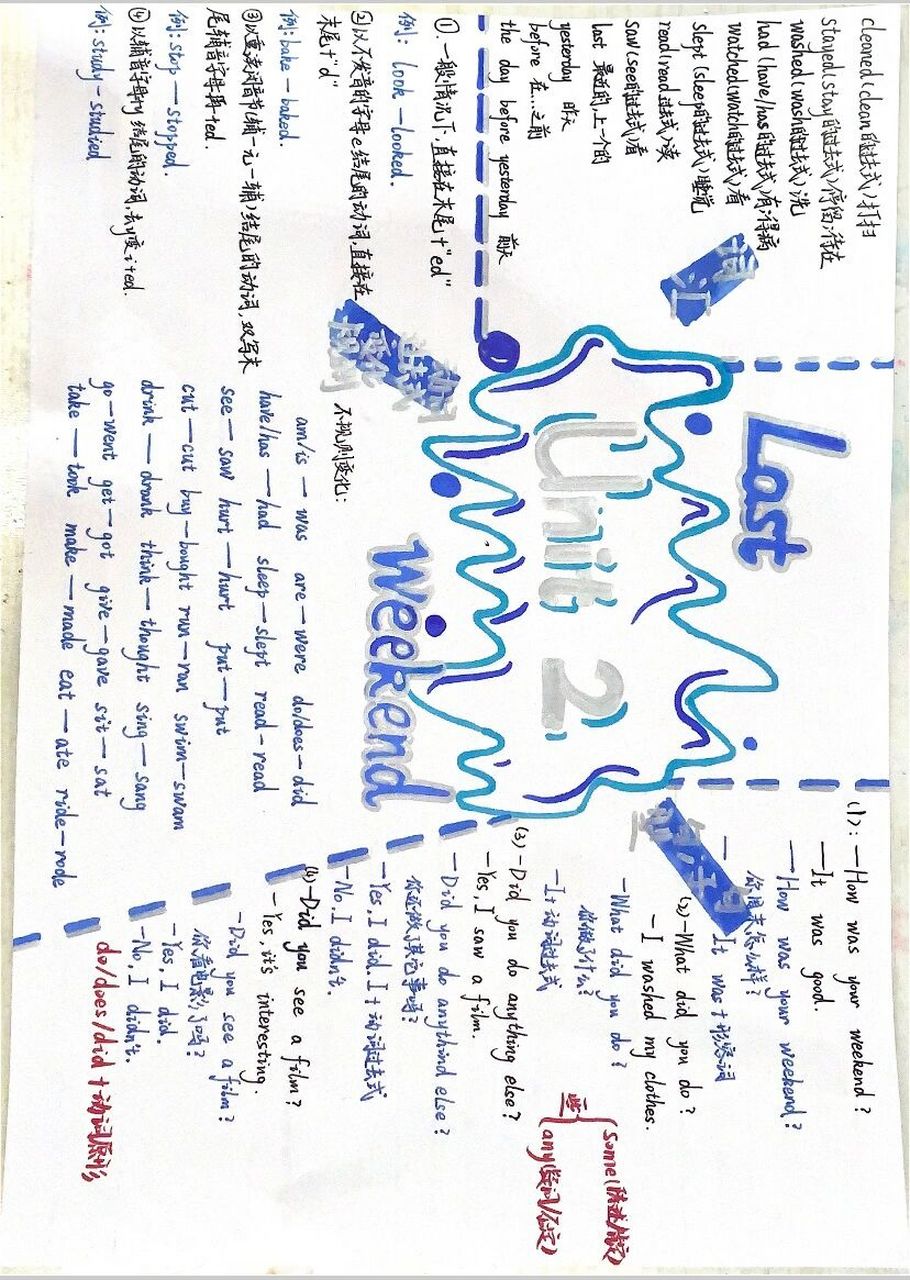 Unit 2
Last
Weekend
词汇
cleaned (clean的过去式) 打扫
stayed (stay的过去式) 停留;待在
washed (wash的过去式) 洗
had (have/has的过去式) 有;得病
watched (watch的过去式) 看
slept (sleep的过去式) 睡觉
read (read过去式) 读
saw (see的过去式) 看
last 最近的,上一个的
yesterday 昨天
before 在...之前
the day before yesterday 前天
①. 一般情况下,直接在末尾+"ed"
例: look—looked.
②以不发音的字母e结尾的动词,直接在
末尾+"d
例: bake—baked.
③以重读闭音节(辅—元—辅)结尾的动词,双写末
尾辅音字母,再+ed.
例: stop—stopped.
④以辅音字母+y结尾的动词,去y变i+ed.
例: study—studied
不规则变化:
am/is—was are—were do/does—did
have/has—had sleep—slept read—read
see—saw hurt—hurt put—put
cut—cut buy—bought run—ran swim—swam
drink—drank think—thought sing—sang
go—went get—got give—gave sit—sat
take—took make—made eat—ate ride—rode
(1): —How was your weekend?
—It was good.
—How was your weekend?
你周末怎么样?
—It was+形容词
(2)—What did you do?
—I washed my clothes.
—What did you do?
你做了什么?
—I+动词过去式
(3)—Did you do anything else?
—Yes, I saw a film.
—Did you do anythind else?
你还做了其它事吗?
—Yes, I did. I+动词过去式
—No, I didn't.
(4)—Did you see a film?
—Yes, it's interesting.
—Did you see a film?
你看电影了吗?
—Yes, I did.
—No, I didn't.
some(陈述/肯定)
一些
any(疑问/否定)
do/does/did+动词原形